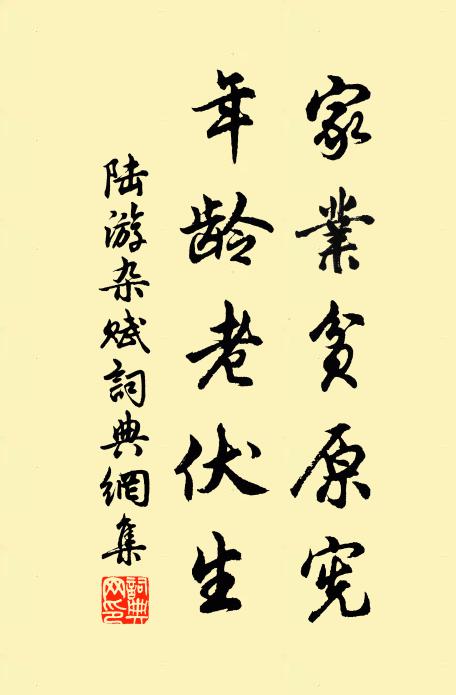 家業貧原宪
年龄老伏生
陆游杂赋詞典網集
詞典网印